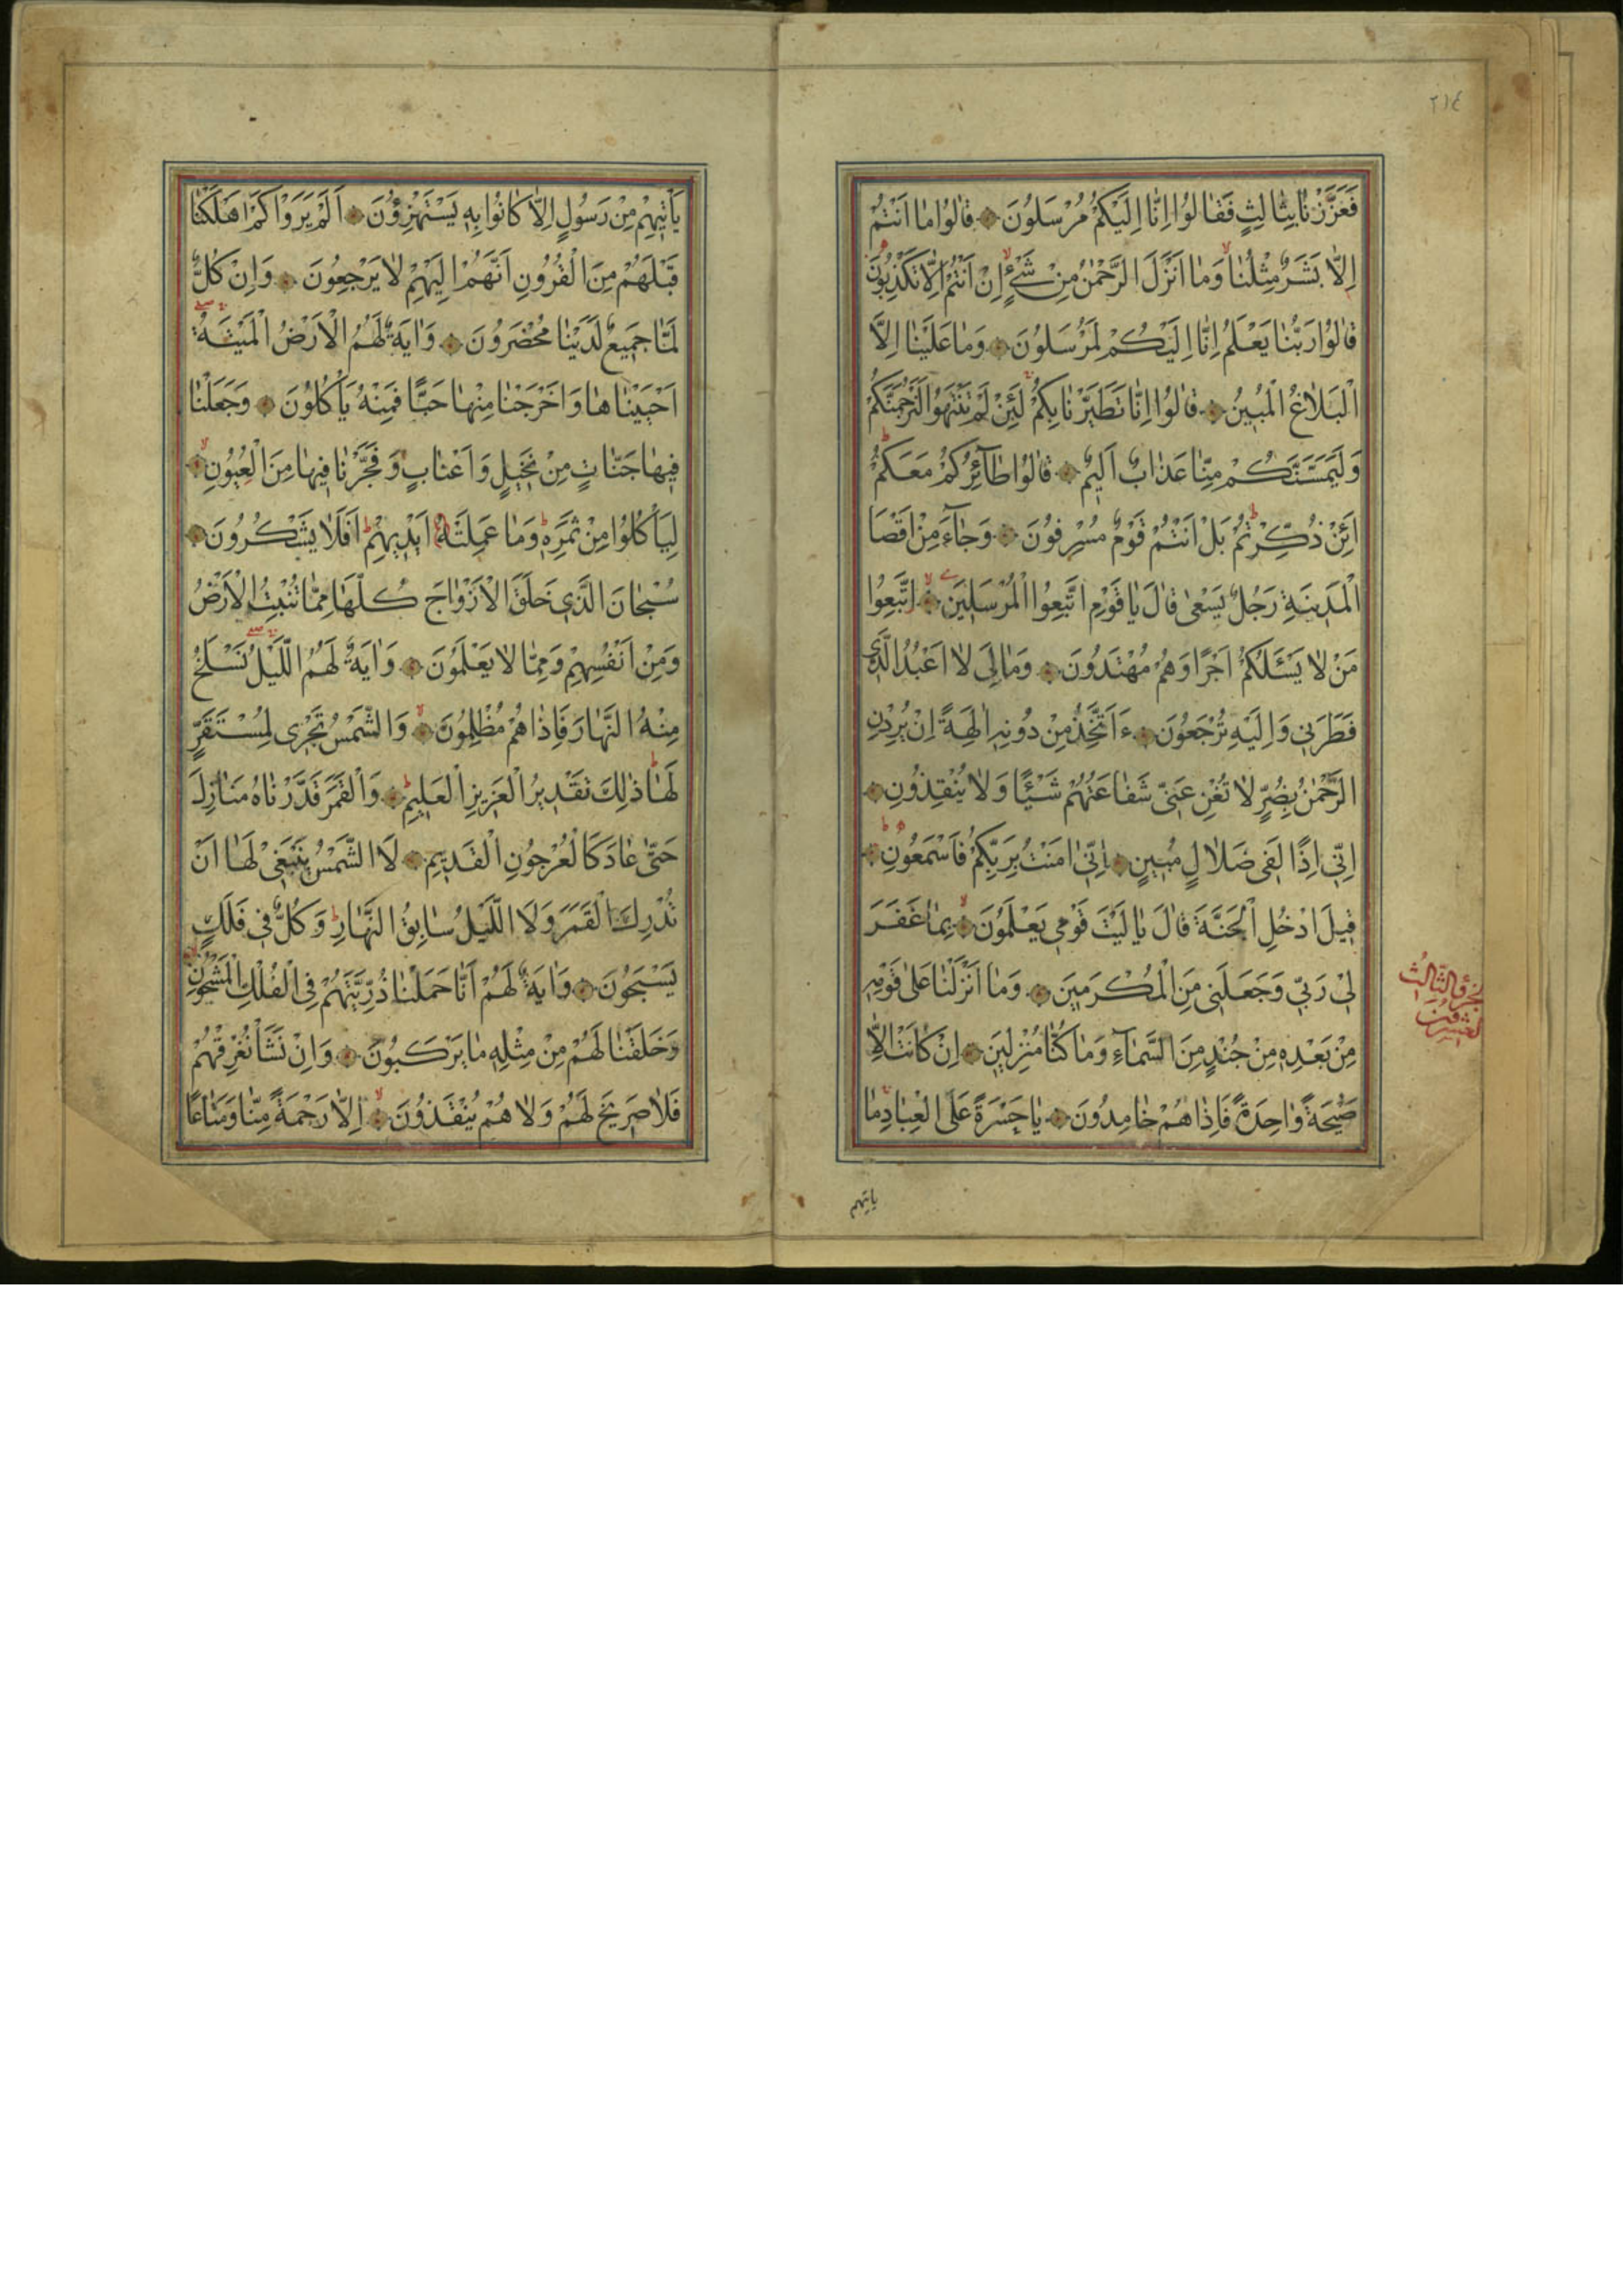 ٢١٤
فَعَزَّزْنَا بِثَالِثٍ فَقَالُوا اِنَّا اِلَيْكُمْ مُرْسَلُونَ قَالُوا مَا اَنْتُمْ
اِلَّا بَشَرٌ مِثْلُنَا وَمَا اَنْزَلَ الرَّحْمٰنُ مِنْ شَيْءٍ اِنْ اَنْتُمْ اِلَّا تَكْذِبُونَ
قَالُوا رَبُّنَا يَعْلَمُ اِنَّا اِلَيْكُمْ لَمُرْسَلُونَ وَمَا عَلَيْنَا اِلَّا
الْبَلَاغُ الْمُبِينُ قَالُوا اِنَّا تَطَيَّرْنَا بِكُمْ لَئِنْ لَمْ تَنْتَهُوا لَنَرْجُمَنَّكُمْ
وَلَيَمَسَّنَّكُمْ مِنَّا عَذَابٌ اَلِيمٌ قَالُوا طَآئِرُكُمْ مَعَكُمْ
اَئِنْ ذُكِّرْتُمْ بَلْ اَنْتُمْ قَوْمٌ مُسْرِفُونَ وَجَآءَ مِنْ اَقْصَا
الْمَدِينَةِ رَجُلٌ يَسْعٰى قَالَ يَا قَوْمِ اتَّبِعُوا الْمُرْسَلِينَ اِتَّبِعُوا
مَنْ لَا يَسْئَلُكُمْ اَجْرًا وَهُمْ مُهْتَدُونَ وَمَا لِىَ لَا اَعْبُدُ الَّذِى
فَطَرَنِى وَاِلَيْهِ تُرْجَعُونَ ءَاَتَّخِذُ مِنْ دُونِهِ اٰلِهَةً اِنْ يُرِدْنِ
الرَّحْمٰنُ بِضُرٍّ لَا تُغْنِ عَنِّى شَفَاعَتُهُمْ شَيْئًا وَلَا يُنْقِذُونِ
اِنِّى اِذًا لَفِى ضَلَالٍ مُبِينٍ اِنِّى اٰمَنْتُ بِرَبِّكُمْ فَاسْمَعُونِ
قِيلَ ادْخُلِ الْجَنَّةَ قَالَ يَا لَيْتَ قَوْمِى يَعْلَمُونَ بِمَا غَفَرَ
لِى رَبِّى وَجَعَلَنِى مِنَ الْمُكْرَمِينَ وَمَا اَنْزَلْنَا عَلٰى قَوْمِهِ
مِنْ بَعْدِهِ مِنْ جُنْدٍ مِنَ السَّمَآءِ وَمَا كُنَّا مُنْزِلِينَ اِنْ كَانَتْ اِلَّا
صَيْحَةً وَاحِدَةً فَاِذَا هُمْ خَامِدُونَ يَا حَسْرَةً عَلَى الْعِبَادِ مَا
ياتيهم
يَاْتِيهِمْ مِنْ رَسُولٍ اِلَّا كَانُوا بِهِ يَسْتَهْزِؤُنَ اَلَمْ يَرَوْا كَمْ اَهْلَكْنَا
قَبْلَهُمْ مِنَ الْقُرُونِ اَنَّهُمْ اِلَيْهِمْ لَا يَرْجِعُونَ وَاِنْ كُلٌّ
لَمَّا جَمِيعٌ لَدَيْنَا مُحْضَرُونَ وَاٰيَةٌ لَهُمُ الْاَرْضُ الْمَيْتَةُ
اَحْيَيْنَاهَا وَاَخْرَجْنَا مِنْهَا حَبًّا فَمِنْهُ يَاْكُلُونَ وَجَعَلْنَا
فِيهَا جَنَّاتٍ مِنْ نَخِيلٍ وَاَعْنَابٍ وَفَجَّرْنَا فِيهَا مِنَ الْعُيُونِ
لِيَاْكُلُوا مِنْ ثَمَرِهِ وَمَا عَمِلَتْهُ اَيْدِيهِمْ اَفَلَا يَشْكُرُونَ
سُبْحَانَ الَّذِى خَلَقَ الْاَزْوَاجَ كُلَّهَا مِمَّا تُنْبِتُ الْاَرْضُ
وَمِنْ اَنْفُسِهِمْ وَمِمَّا لَا يَعْلَمُونَ وَاٰيَةٌ لَهُمُ الَّيْلُ نَسْلَخُ
مِنْهُ النَّهَارَ فَاِذَا هُمْ مُظْلِمُونَ وَالشَّمْسُ تَجْرِى لِمُسْتَقَرٍّ
لَهَا ذٰلِكَ تَقْدِيرُ الْعَزِيزِ الْعَلِيمِ وَالْقَمَرَ قَدَّرْنَاهُ مَنَازِلَ
حَتّٰى عَادَ كَالْعُرْجُونِ الْقَدِيمِ لَا الشَّمْسُ يَنْبَغِى لَهَا اَنْ
تُدْرِكَ الْقَمَرَ وَلَا الَّيْلُ سَابِقُ النَّهَارِ وَكُلٌّ فِى فَلَكٍ
يَسْبَحُونَ وَاٰيَةٌ لَهُمْ اَنَّا حَمَلْنَا ذُرِّيَّتَهُمْ فِى الْفُلْكِ الْمَشْحُونِ
وَخَلَقْنَا لَهُمْ مِنْ مِثْلِهِ مَا يَرْكَبُونَ وَاِنْ نَشَاْ نُغْرِقْهُمْ
فَلَا صَرِيخَ لَهُمْ وَلَا هُمْ يُنْقَذُونَ اِلَّا رَحْمَةً مِنَّا وَمَتَاعًا